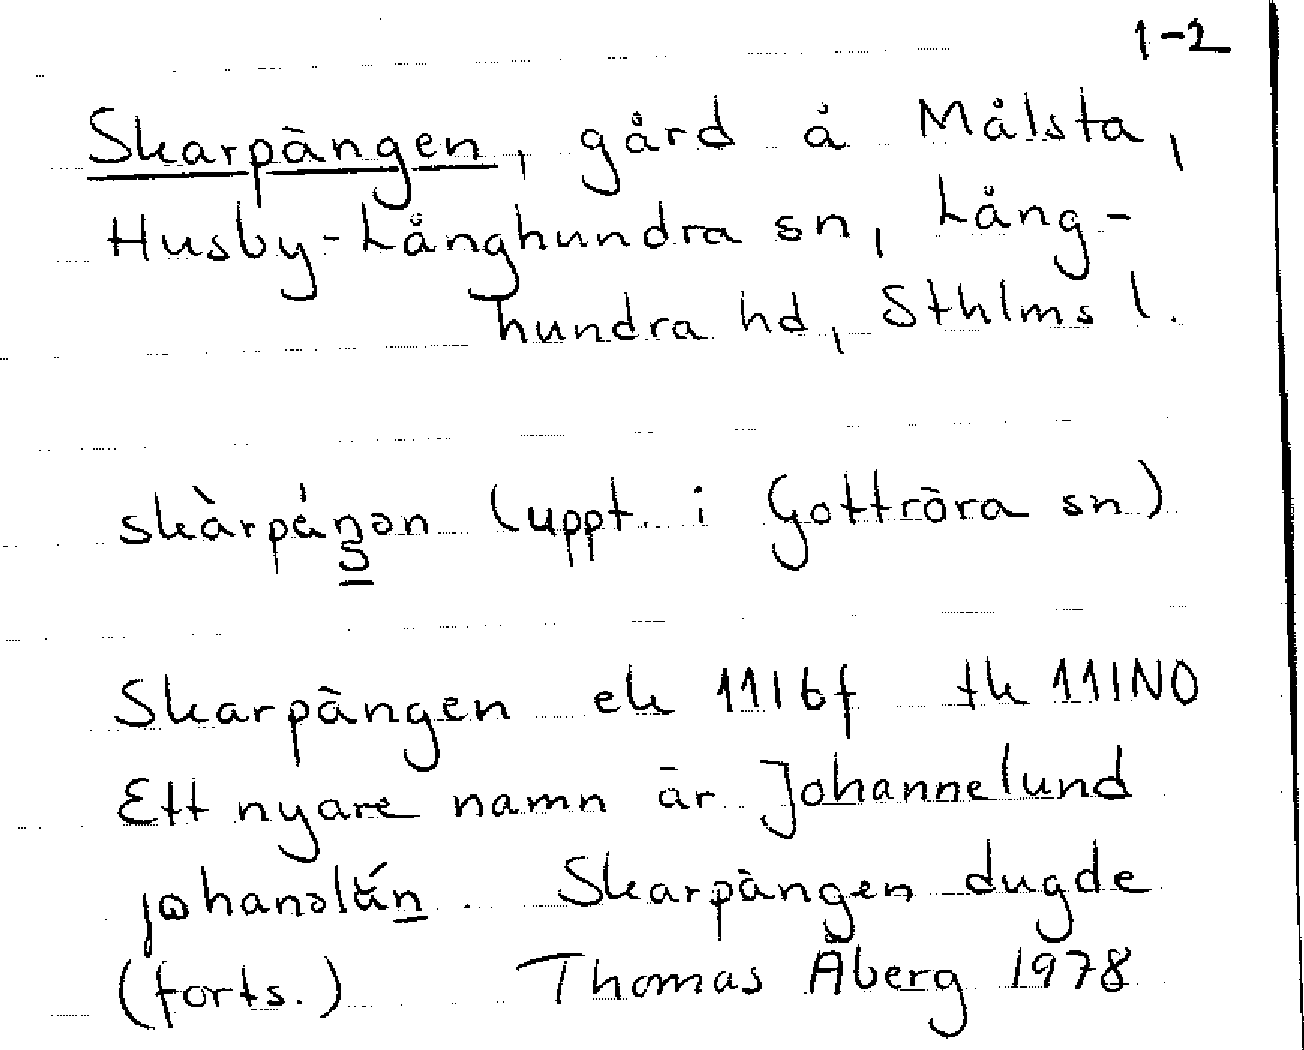 1-2
Skarpängen, gård å Målsta,
Husby-Långhundra sn, Lång-
hundra hd, Sthlms l.
skàrpáŋən (uppt. i Gottröra sn)
Skarpängen ek 11I6f tk 11INO
Ett nyare namn är Johannelund
Skarpängen dugde
(forts.) Thomas Åberg 1978